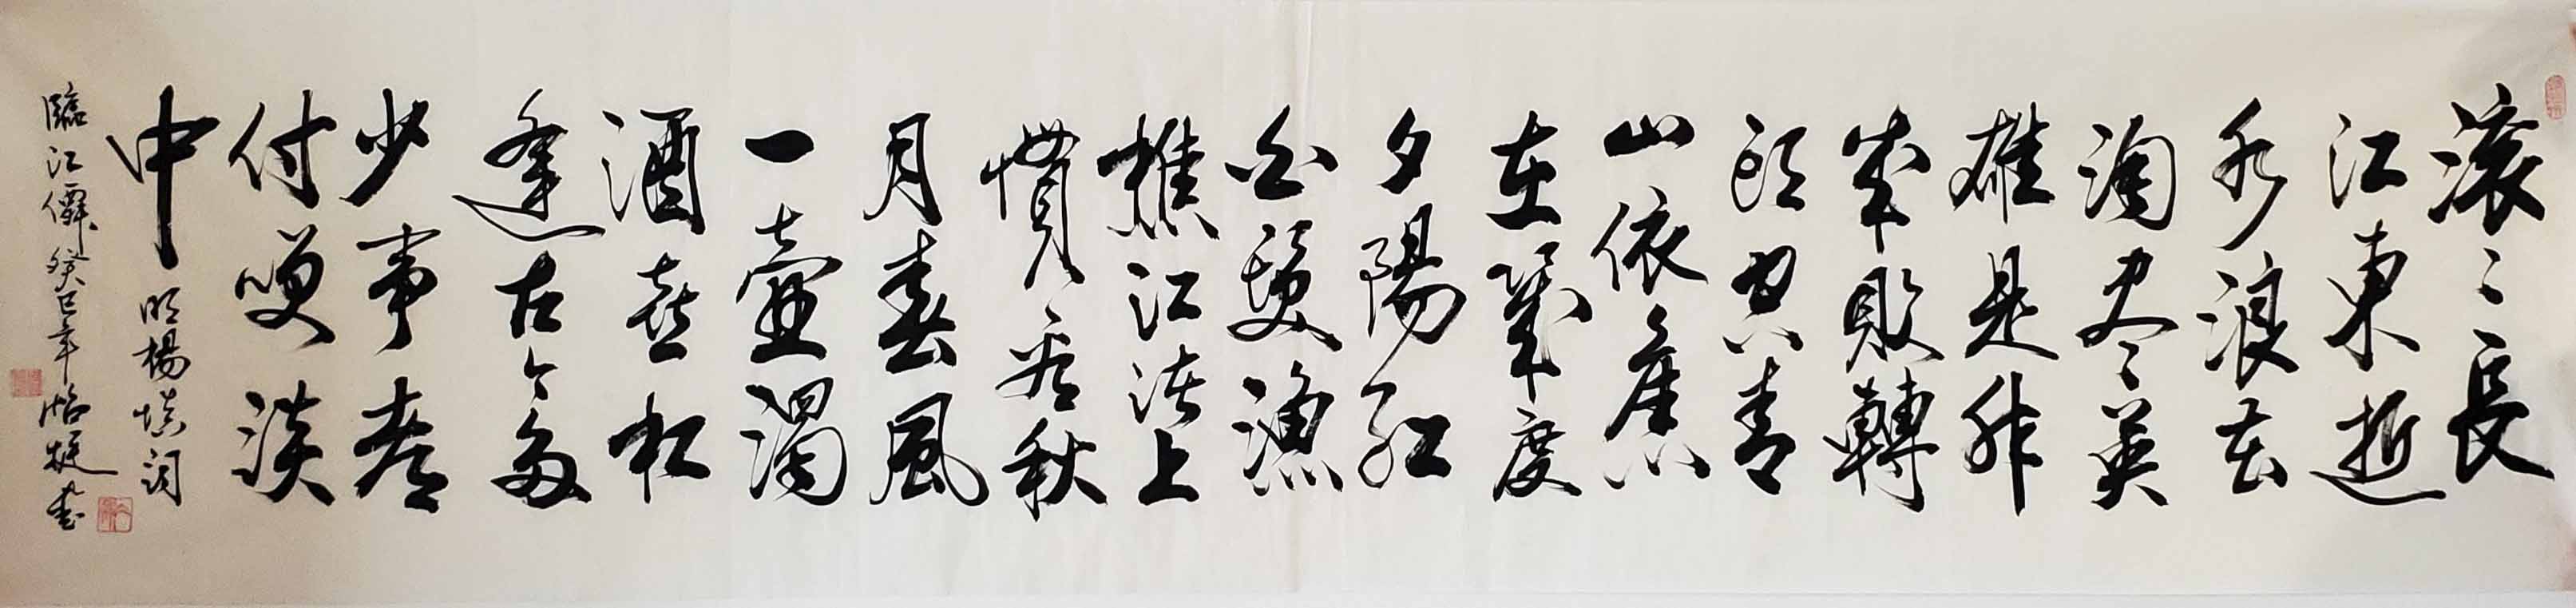 滚〻長
江東逝
水浪花
淘尽英
雄是非
成敗轉
頭空青
山依舊
在幾度
夕陽紅
白髮漁
樵江渚上
慣看秋
月春風
一壺濁
酒喜相
逢古今多
少事都
付笑談
中
明楊慎詞
臨江僊癸巳年書